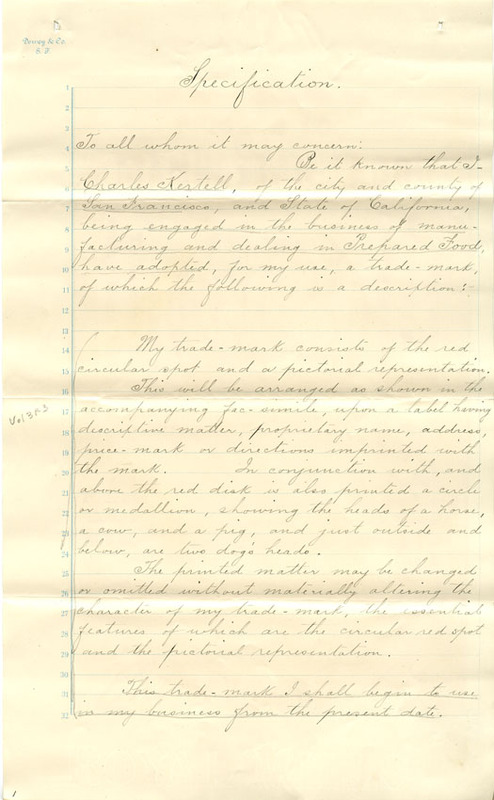 Dewey & Co.
S. F.
Specification.
1
2
3
4
5
6
7
8
9
10
11
12
13
14
15
16
17
18
19
20
21
22
23
24
25
26
27
28
29
30
31
32
To all whom it may concern:
Be it known that I
Charles Kertell, of the city and county of
San Francisco, and State of California,
being engaged in the business of manu-
facturing and dealing in Prepared Food,
have adopted, for my use, a trade-mark,
of which the following is a description:
My trade-mark consists of the red
circular spot and a pictorial representation.
This will be arranged as shown in the
accompanying fac-simile, upon a label having
descriptive matter, proprietary name, address,
price-mark or directions imprinted with
the mark. In conjunction with, and
above the red disk is also printed a circle
or medallion, showing the heads of a horse,
a cow, and a pig, and just outside and
below, are two dogs heads.
The printed matter may be changed
or omitted without materially altering the
character of my trade-mark, the essential
features of which are the circular red spot
and the pictorial representation.
This trade-mark I shall begin to use
in my business from the present date.